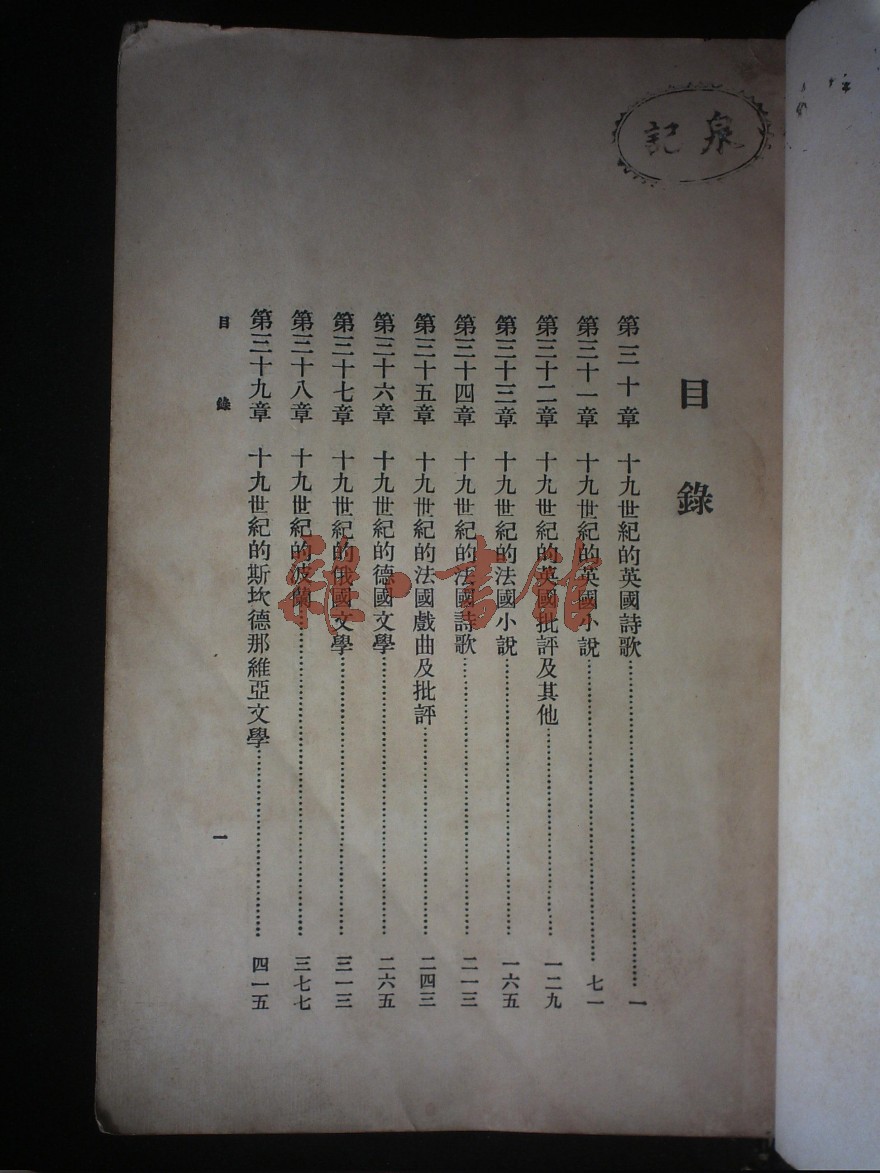 泉記
目錄
第三十章　十九世紀的英國詩歌……一
第三十一章　十九世紀的英國小說……七一
第三十二章　十九世紀的英國批評及其他……一二九
第三十三章　十九世紀的法國小說……一六五
第三十四章　十九世紀的法國詩歌……二一三
第三十五章　十九世紀的法國戲曲及批評……二四三
第三十六章　十九世紀的德國文學……二六五
第三十七章　十九世紀的俄國文學……三一三
第三十八章　十九世紀的波蘭……三七七
第三十九章　十九世紀的斯坎德那維亞文學……四一五
目錄　一
雜·書館